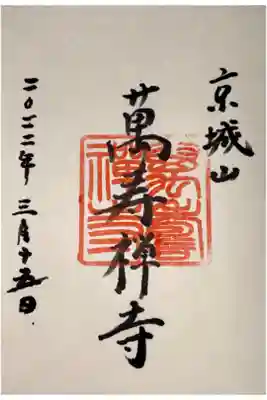 京城山
萬寿禅寺
二〇二二年三月十五日